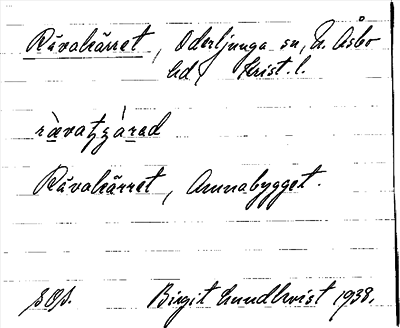 Rävakärret, Oderljunga sn, N. Åsbo
hd Krist. l.
Rävakärret, Annabygget.
Birgit Lundkvist 1938.